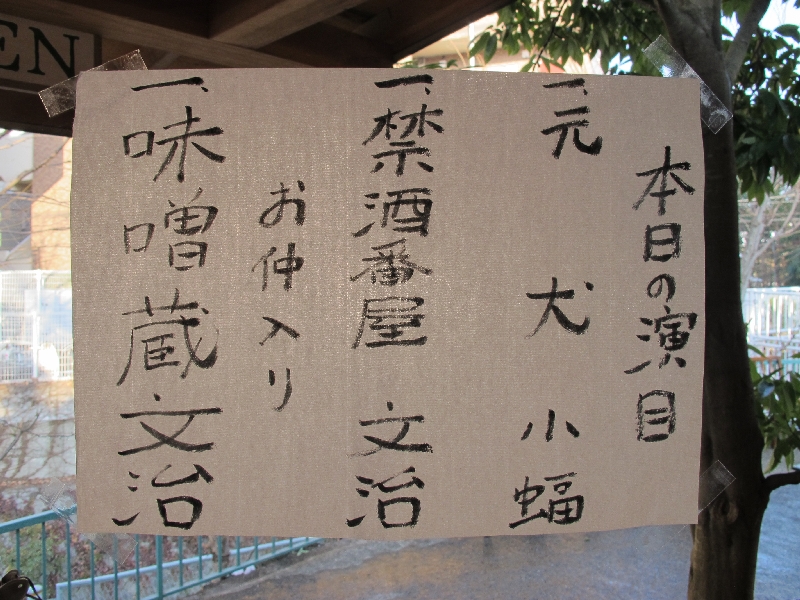 本日の演目
一、元犬 小蝠
一、禁酒番屋 文治
お仲入り
一、味噌蔵 文治
EN